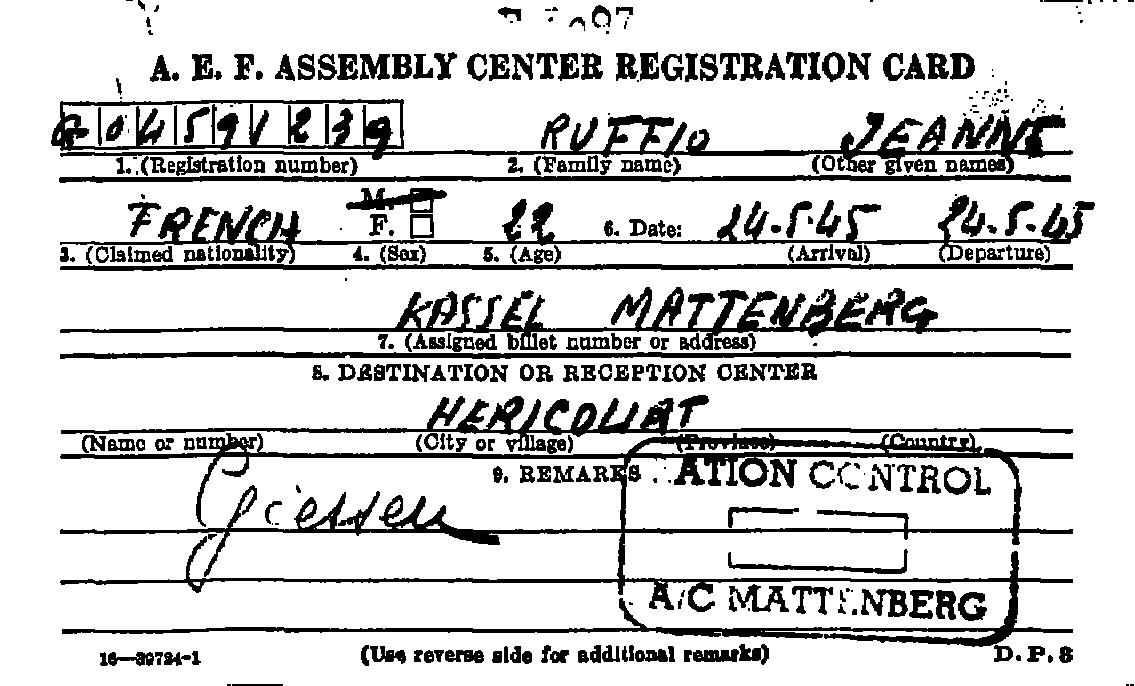 A. E. F. ASSEMBLY CENTER REGISTRATION CARD
G 0 4 5 9 1 2 3 9 RUFFIO JEANNE
1. (Registration number) 2. (Family name) (Other given names)
FRENCH M. F. 22 6. Date: 24.5.45 24.5.45
3. (Claimed nationality) 4. (Sex) 5. (Age) (Arrival) (Departure)
KASSEL MATTENBERG
7. (Assigned billet number or address)
8. DESTINATION OR RECEPTION CENTER
HERICOURT
(Name or number) (City or village) (Province) (Country)
9. REMARKS ATION CONTROL
Giessen
A/C MATTENBERG
16—39724-1 (Use reverse side for additional remarks) D. P. 8